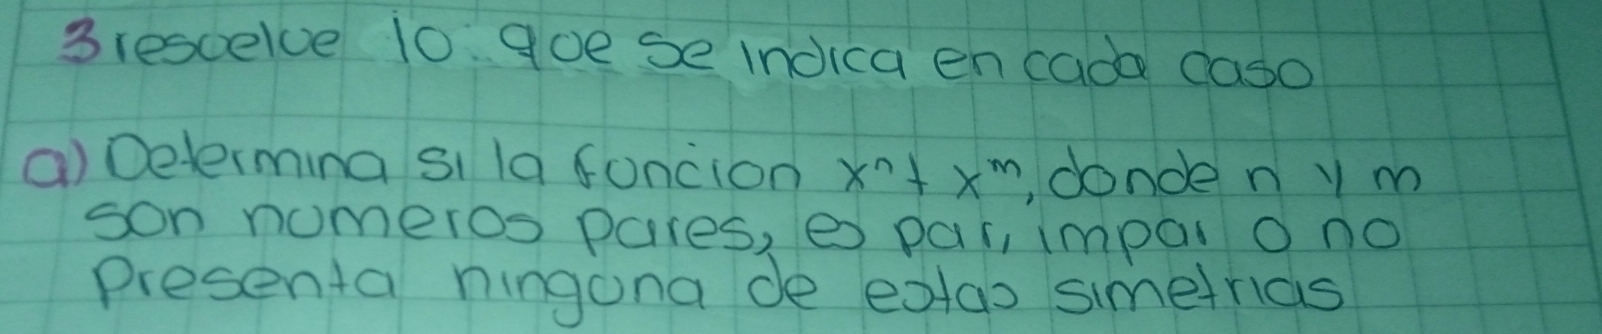 3 resuelve lo que se indica en cada caso
a) Determina si la funcion xⁿ + xᵐ, donde n y m
son numeros pares, es par, impar o no
presenta ninguna de estas simetrias